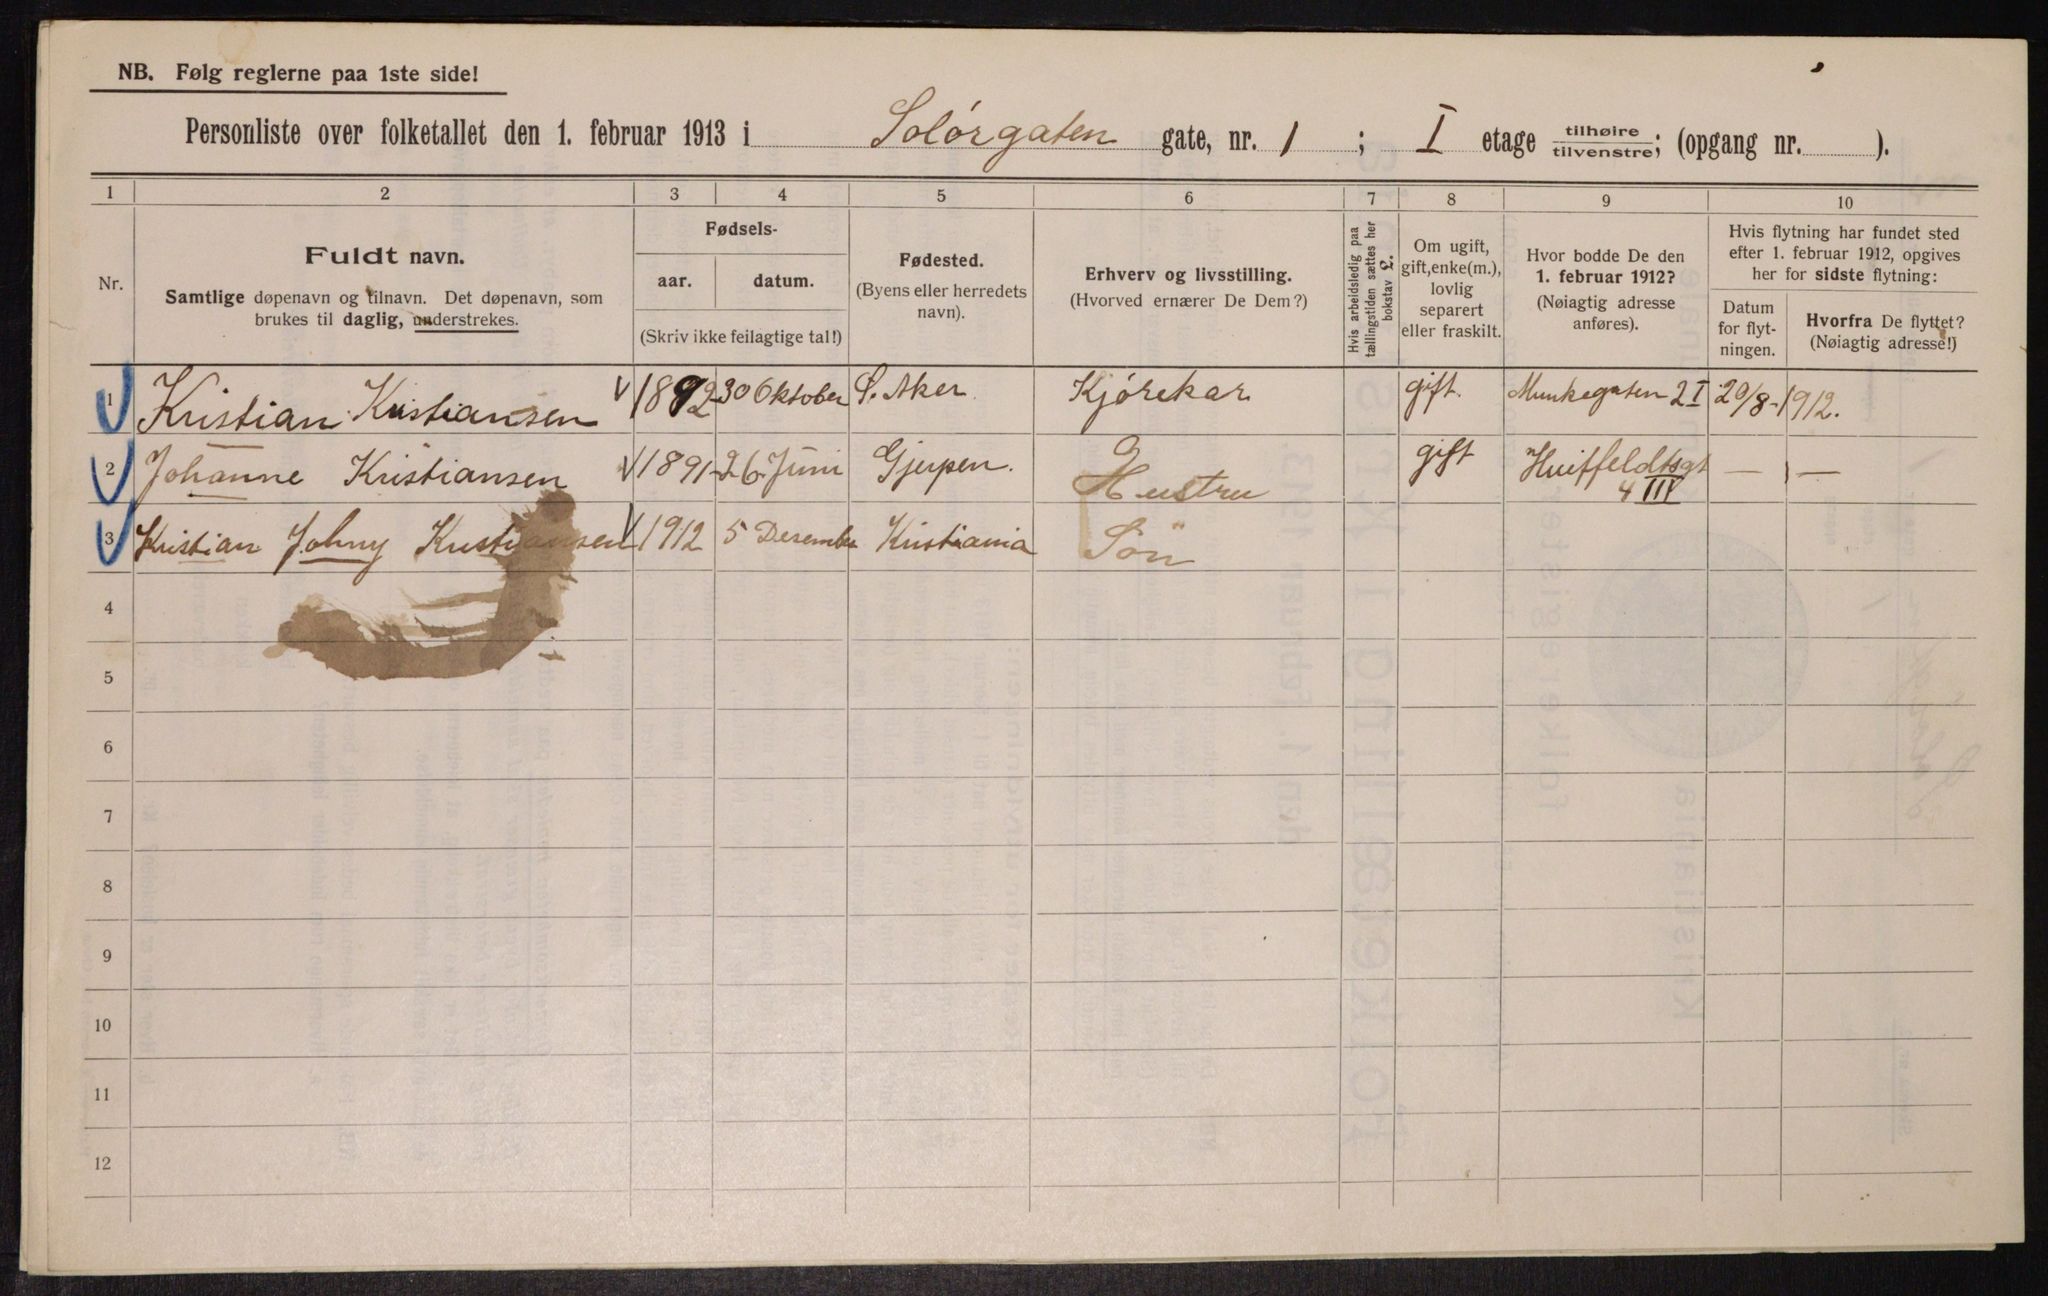 NB. Følg reglerne paa 1ste side!
Personliste over folketallet den 1. februar 1913 i Solørgaten gate, nr. 1 ; I etage tilhøire tilvenstre; (opgang nr. ).
1 2 3 4 5 6 7 8 9 10
Nr.
Fuldt navn.
Samtlige døpenavn og tilnavn. Det døpenavn, som
brukes til daglig, understrekes.
Fødsels-
aar. datum.
(Skriv ikke feilagtige tal!)
Fødested.
(Byens eller herredets
navn).
Erhverv og livsstilling.
(Hvorved ernærer De Dem?)
Hvis arbeidsledig paa
tællingstiden sættes her
bokstav L.
Om ugift,
gift, enke(m.),
lovlig
separert
eller fraskilt.
Hvor bodde De den
1. februar 1912?
(Nøiagtig adresse
anføres).
Hvis flytning har fundet sted
efter 1. februar 1912, opgives
her for sidste flytning:
Datum
for flyt-
ningen.
Hvorfra De flyttet?
(Nøiagtig adresse!)
1 Kristian Kristiansen 1892 30 Oktober S. Aker Kjørekar gift. Munkegaten 2 I 20/8-1912.
2 Johanne Kristiansen 1891 26 Juni Gjerpen. Hustru gift Huitfeldtsgt — 1 —
4 III
3 Kristian Johny Kristiansen 1912 5 Desember Kristiania Søn
4
5
6
7
8
9
10
11
12